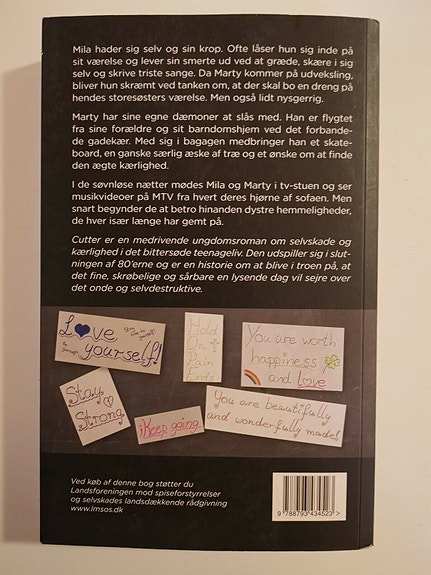 Mila hader sig selv og sin krop. Ofte låser hun sig inde på
sit værelse og lever sin smerte ud ved at græde, skære i sig
selv og skrive triste sange. Da Marty kommer på udveksling,
bliver hun skræmt ved tanken om, at der skal bo en dreng på
hendes storesøsters værelse. Men også lidt nysgerrig.
Marty har sine egne dæmoner at slås med. Han er flygtet
fra sine forældre og sit barndomshjem ved det forbande-
de gadekær. Med sig i bagagen medbringer han et skate-
board, en ganske særlig æske af træ og et ønske om at finde
den ægte kærlighed.
I de søvnløse nætter mødes Mila og Marty i tv-stuen og ser
musikvideoer på MTV fra hvert deres hjørne af sofaen. Men
snart begynder de at betro hinanden dystre hemmeligheder,
de hver især længe har gemt på.
Cutter er en medrivende ungdomsroman om selvskade og
kærlighed i det bittersøde teenageliv. Den udspiller sig i slut-
ningen af 80'erne og er en historie om at blive i troen på, at
det fine, skrøbelige og sårbare en lysende dag vil sejre over
det onde og selvdestruktive.
Love
yourself!
Hold
On
Pain
Ends
You are worth
happiness
and love
Stay
Strong
Keep going
You are beautifully
and wonderfully made!
Ved køb af denne bog støtter du
Landsforeningen mod spiseforstyrrelser
og selvskades landsdækkende rådgivning
www.lmsos.dk
9 788793 434523 >